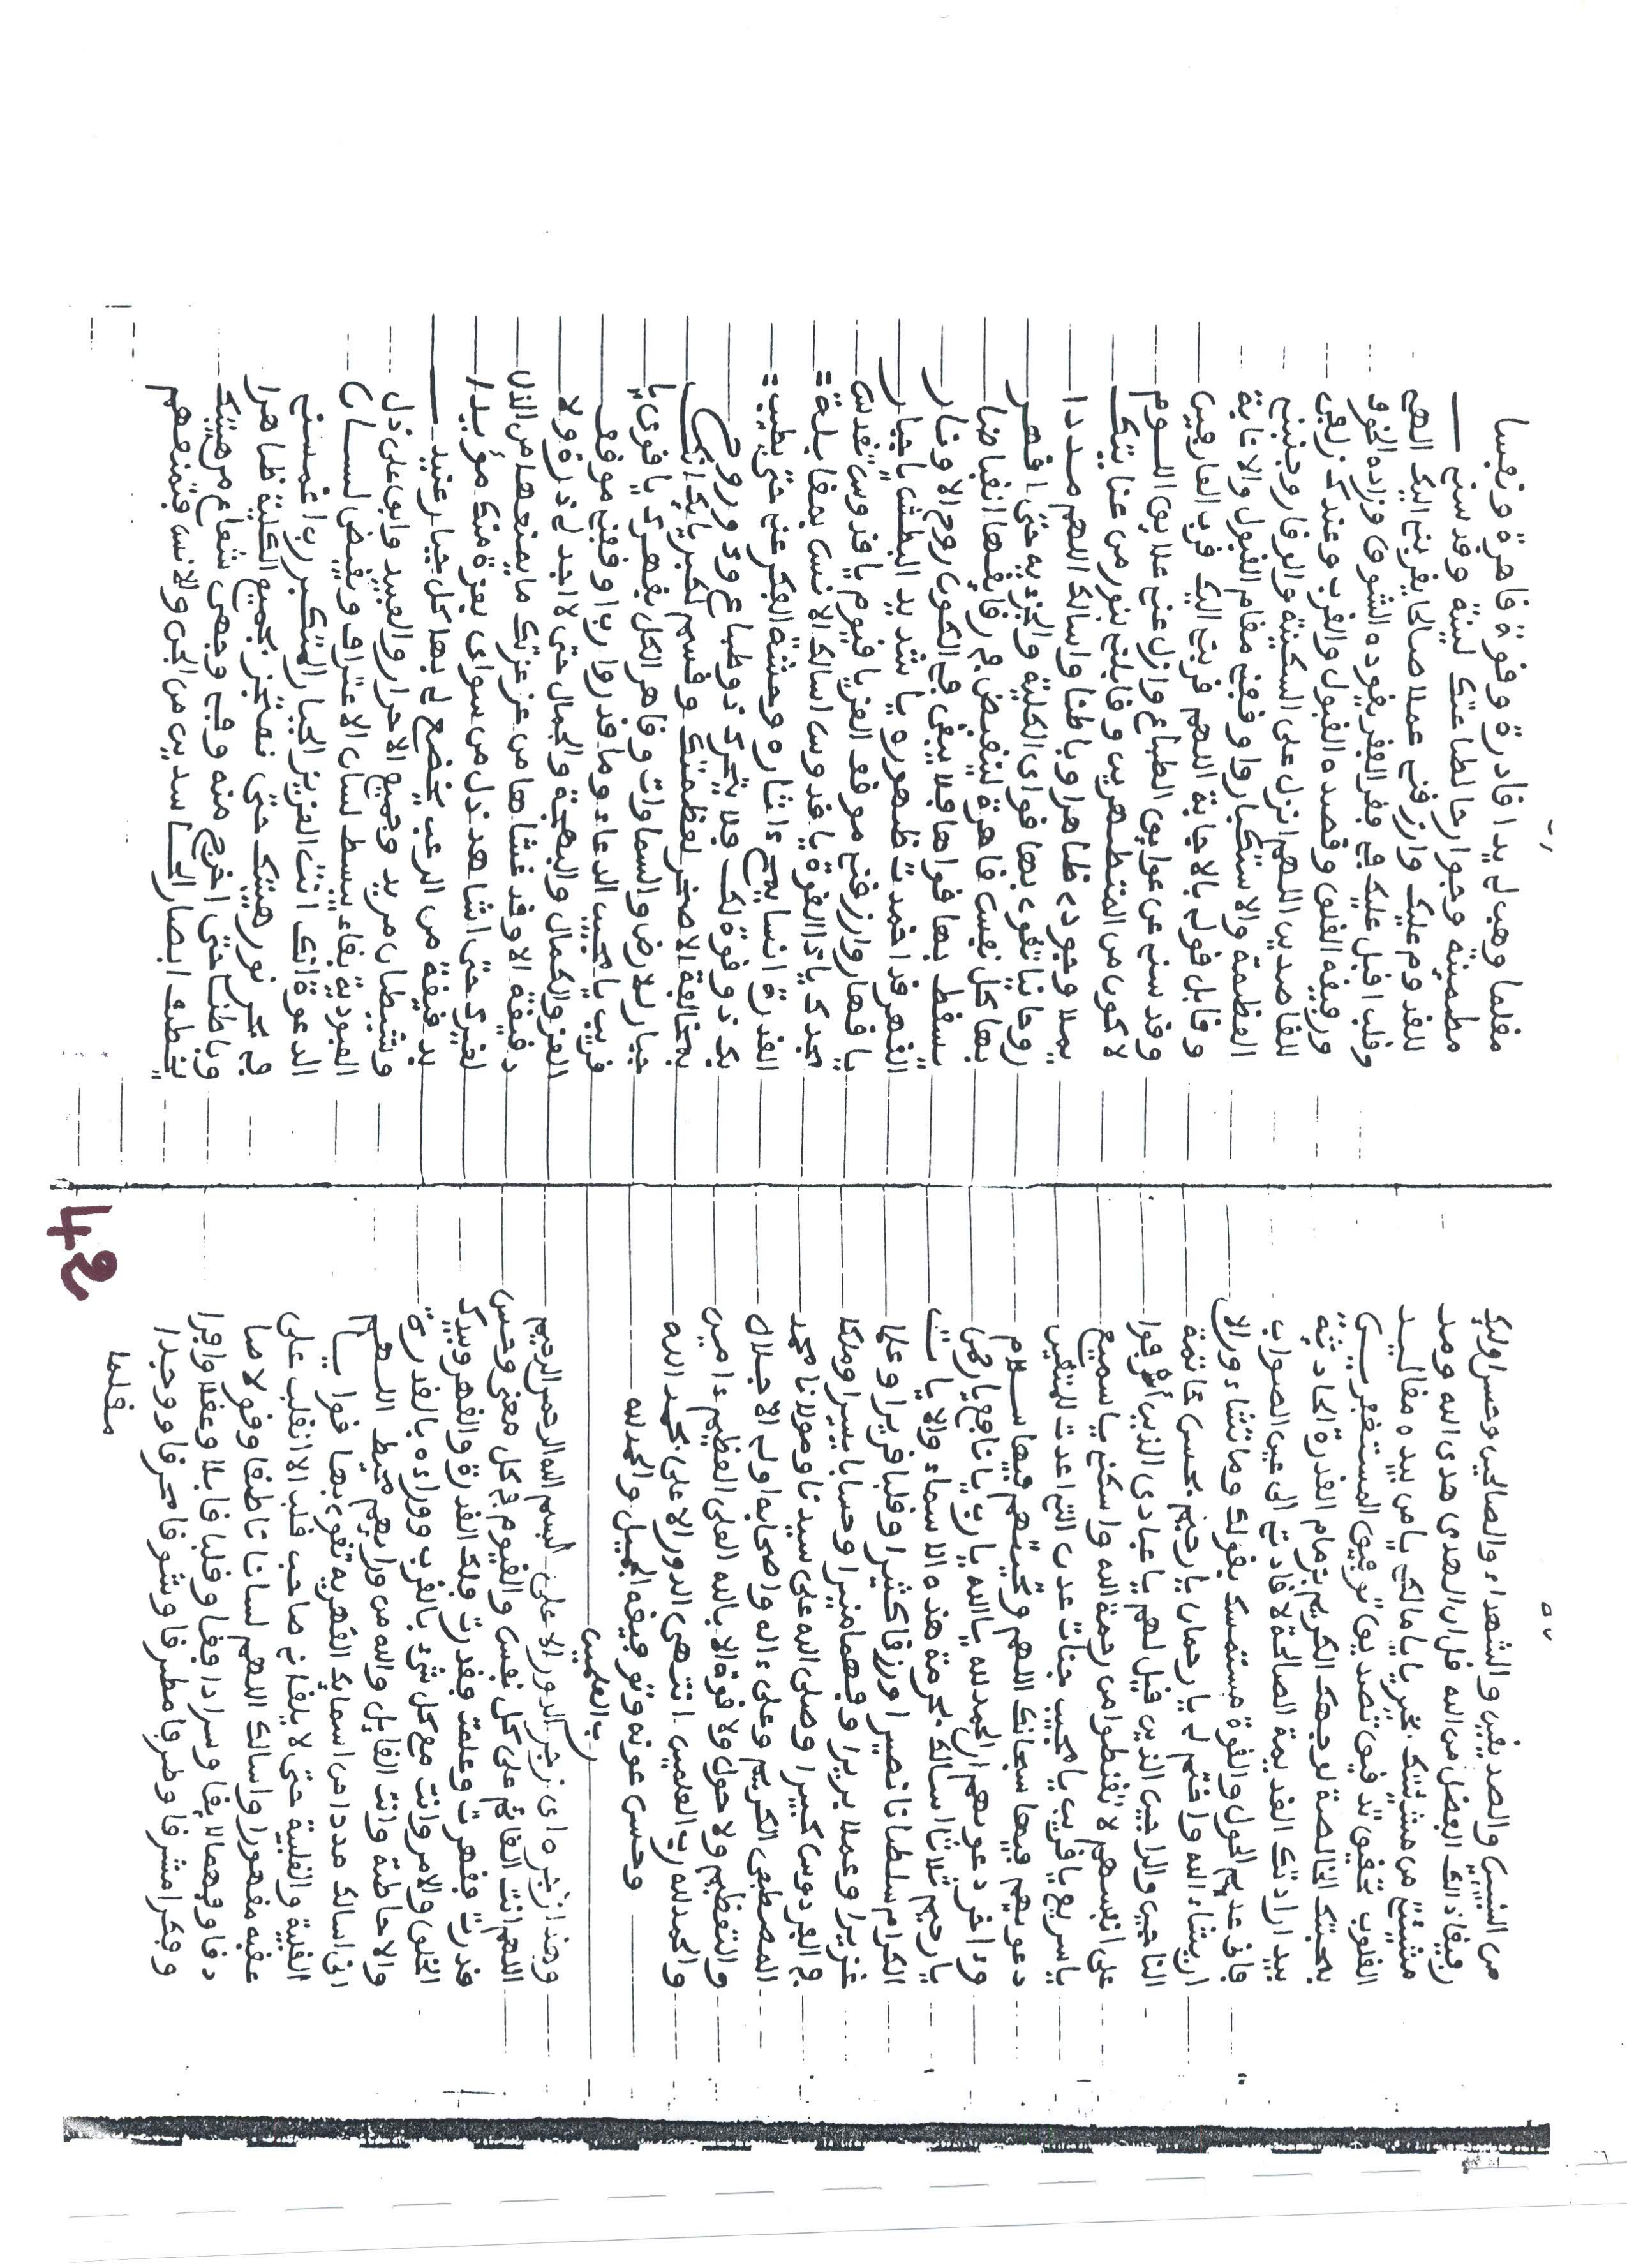 من النبيين والصديقين والشهداء والصالحين وحسن اولئك
رفيقا ذلك الفضل من الله قل ان الهدى هدى الله ومد
مشيئتي من مشيئتك بخير يا مالكي يا من بيده مقاليد
القلوب بتحقيق تدقيق تصديق توفيق المستغفرين
بمحبتك الخالصة لوجهك الكريم بزمام القدرة الحادثية
بيد ارادتك القديمة الصالحة لا قادتي الى عين الصواب
فانى عديم الحول والقوة مستمسك بقولك وما تشاءون الا
ان يشاء الله واختم لي يا رحمان يا رحيم بحسن خاتمة
الناجين والراجين الذين قيل لهم يا عبادي الذين أسرفوا
على انفسهم لا تقنطوا من رحمة الله واسكني يا سميع
يا سريع يا قريب يا مجيب جنات عدن التي اعدت للمتقين
دعويهم فيها سبحانك اللهم وتحيتهم فيها سلام
وءاخر دعويهم ان الحمد لله يا الله يا رب يا نافع يا رحمن
يا رحيم ثلاثا اسالك بحرمة هذه الاسماء والايات
الكرام سلطانا نصيرا ورزقا كثيرا وقلبا قريرا وعلما
غزيرا وعملا بريرا وفهما منيرا وحسابا يسيرا وملكا
في الفردوس كبيرا وصلى الله على سيدنا ومولانا محمد
المصطفى الكريم وعلى ءاله واصحابه اولى الاجلال
والتعظيم ولا حول ولا قوة الا بالله العلي العظيم ءامين
والحمد لله رب العلمين انتهى الدور الاعلى بحمد الله
وحسن عونه وتوفيقه الجميل والحمد لله
رب العلمين
وهذا زجره اى زجر الدور الاعلى بسم الله الرحمن الرحيم
اللهم انت القائم على كل نفس والقيوم في كل معنى وحس
قدرت فقهرت وعلمت فقدرت فلك القدرة والقهر وبيدك
الخلق والامر وانت مع كل شيء بالقرب ووراءه بالقدرة
والاحاطة وانت القايل والله من ورائهم محيط اللهم
انى اسالك مددا من اسمائك القهرية تقوى بها قواى
القلبية والقلبية حتى لا يلقانى صاحب قلب الا انقلب على
عقبه مقهورا واسالك اللهم لسانا ناطقا وقولا صا
دقا وفهما لايقا وسرا دافقا وقلبا قابلا وعقلا وافرا
وفكرا مشرقا وطرفا مطرقا وشوقا محرقا ووجدا
مقلقا
مقلقا وهب لي يدا قادرة وقوة قاهرة ونفسا
مطمئنة وجوارحا لطاعتك لينة وقدسني
للقدوم عليك وارزقني عملا صالحا يقربني اليك اللهم
وقلب اقبل عليك في فقر الفقر يقوده الشوق وزاده الخوف
ورفيقه القلق وقصده القبول والقرب وعندك زلفى
للقاصدين اللهم انزل على السكينة والوقار وجنبني
العظمة والاستكبار واوقفني مقام القبول والانابة
وقابل قولي بالاجابة اللهم قربني اليك قرب العارفين
وقدسني عن عوايق الطباع وازل عني علايق السوم
لاكون من المتطهرين وقابلني بنور من عنايتك
يملا وجودي ظاهرا وباطنا واسالك اللهم مددا
روحانيا تقوى بها قواى الكلية والجزئية حتى اقهر
بها كل نفس قاهرة لينقبض في رقايقها انقباضا
تسقط بها قواها فلا يبقى في الكون روح الا ونار
القهر قد اخمدت ظهوره يا شديد البطش يا جبار
يا قهار وارزقني موقف العز يا قيوم يا قدوس تقدس
بمجدك يا ذا القوة يا قدوس اسالك الانس بمقابلة
القدرة انسا يمحي ءاثاره وحشة الفكر عني حتى يطيب
بك ذو وقوة لك فلا يتحرك ذو طباع وذو روح
بمخالفة الا صغر لعظمتك وقسم لكبريائك انك
جبار الارض والسماوات وقاهر الكل بقهرك يا قوى يا
قريب يا مجيب الدعاء وما قدروا رب اوقفني موقف
العز والكمال والبهجة والجمال حتى لا اجد لي ذرة ولا
دقيقة الا وقد غشاها من عز عزتك ما يمنعها من الذل
لغيرك حتى اشاهد ذل من سواى بعزة منك مؤيدا
بدقيقة من الرعب يخضع لي بها كل جبار عنيد
وشيطان مريد وجميع الاحرار والعبيد وابق على ذل
العبودية بقاء يبسط لسان الاعتراف ويقبض لسان
الدعوة انك انت العزيز الجبار المتكبر رب اغمسني
في بحر نور هيبتك حتى تعجز بجميع الكلية ظاهرا
وباطنا حتى اخرج منه وفي وجهى شعاع من هيبتك
يخطف ابصار الحاسدين من الجن والانس فتمنعهم
48